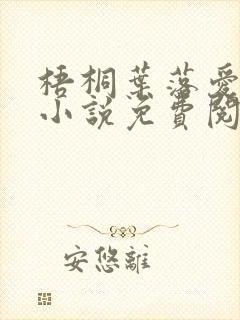 梧桐葉落愛
小說免費閱
安悠離